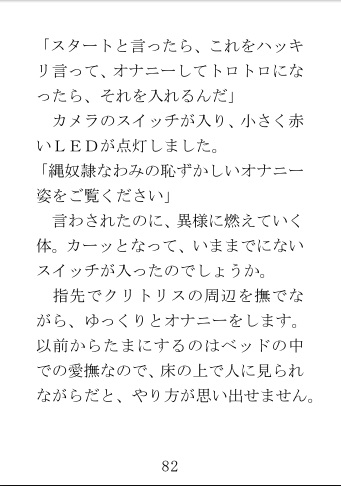 「スタートと言ったら、これをハッキ
リ言って、オナニーしてトロトロにな
ったら、それを入れるんだ」
　カメラのスイッチが入り、小さく赤
いＬＥＤが点灯しました。
「縄奴隷なわみの恥ずかしいオナニー
姿をご覧ください」
　言わされたのに、異様に燃えていく
体。カーッとなって、いままでにない
スイッチが入ったのでしょうか。
　指先でクリトリスの周辺を撫でな
がら、ゆっくりとオナニーをします。
以前からたまにするのはベッドの中
での愛撫なので、床の上で人に見られ
ながらだと、やり方が思い出せません。
82